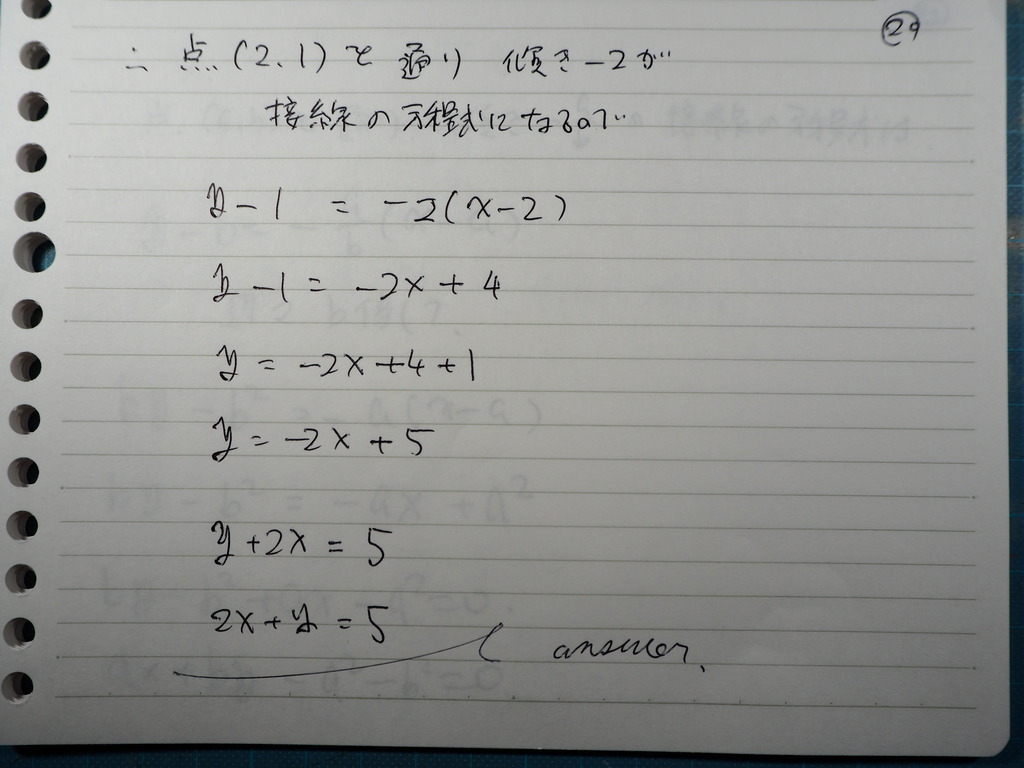 29
∴ 点(2,1)を通り 傾き-2が
接線の方程式になるので
y-1 = -2(x-2)
y-1 = -2x+4
y = -2x+4+1
y = -2x+5
y+2x = 5
2x+y = 5
answer.